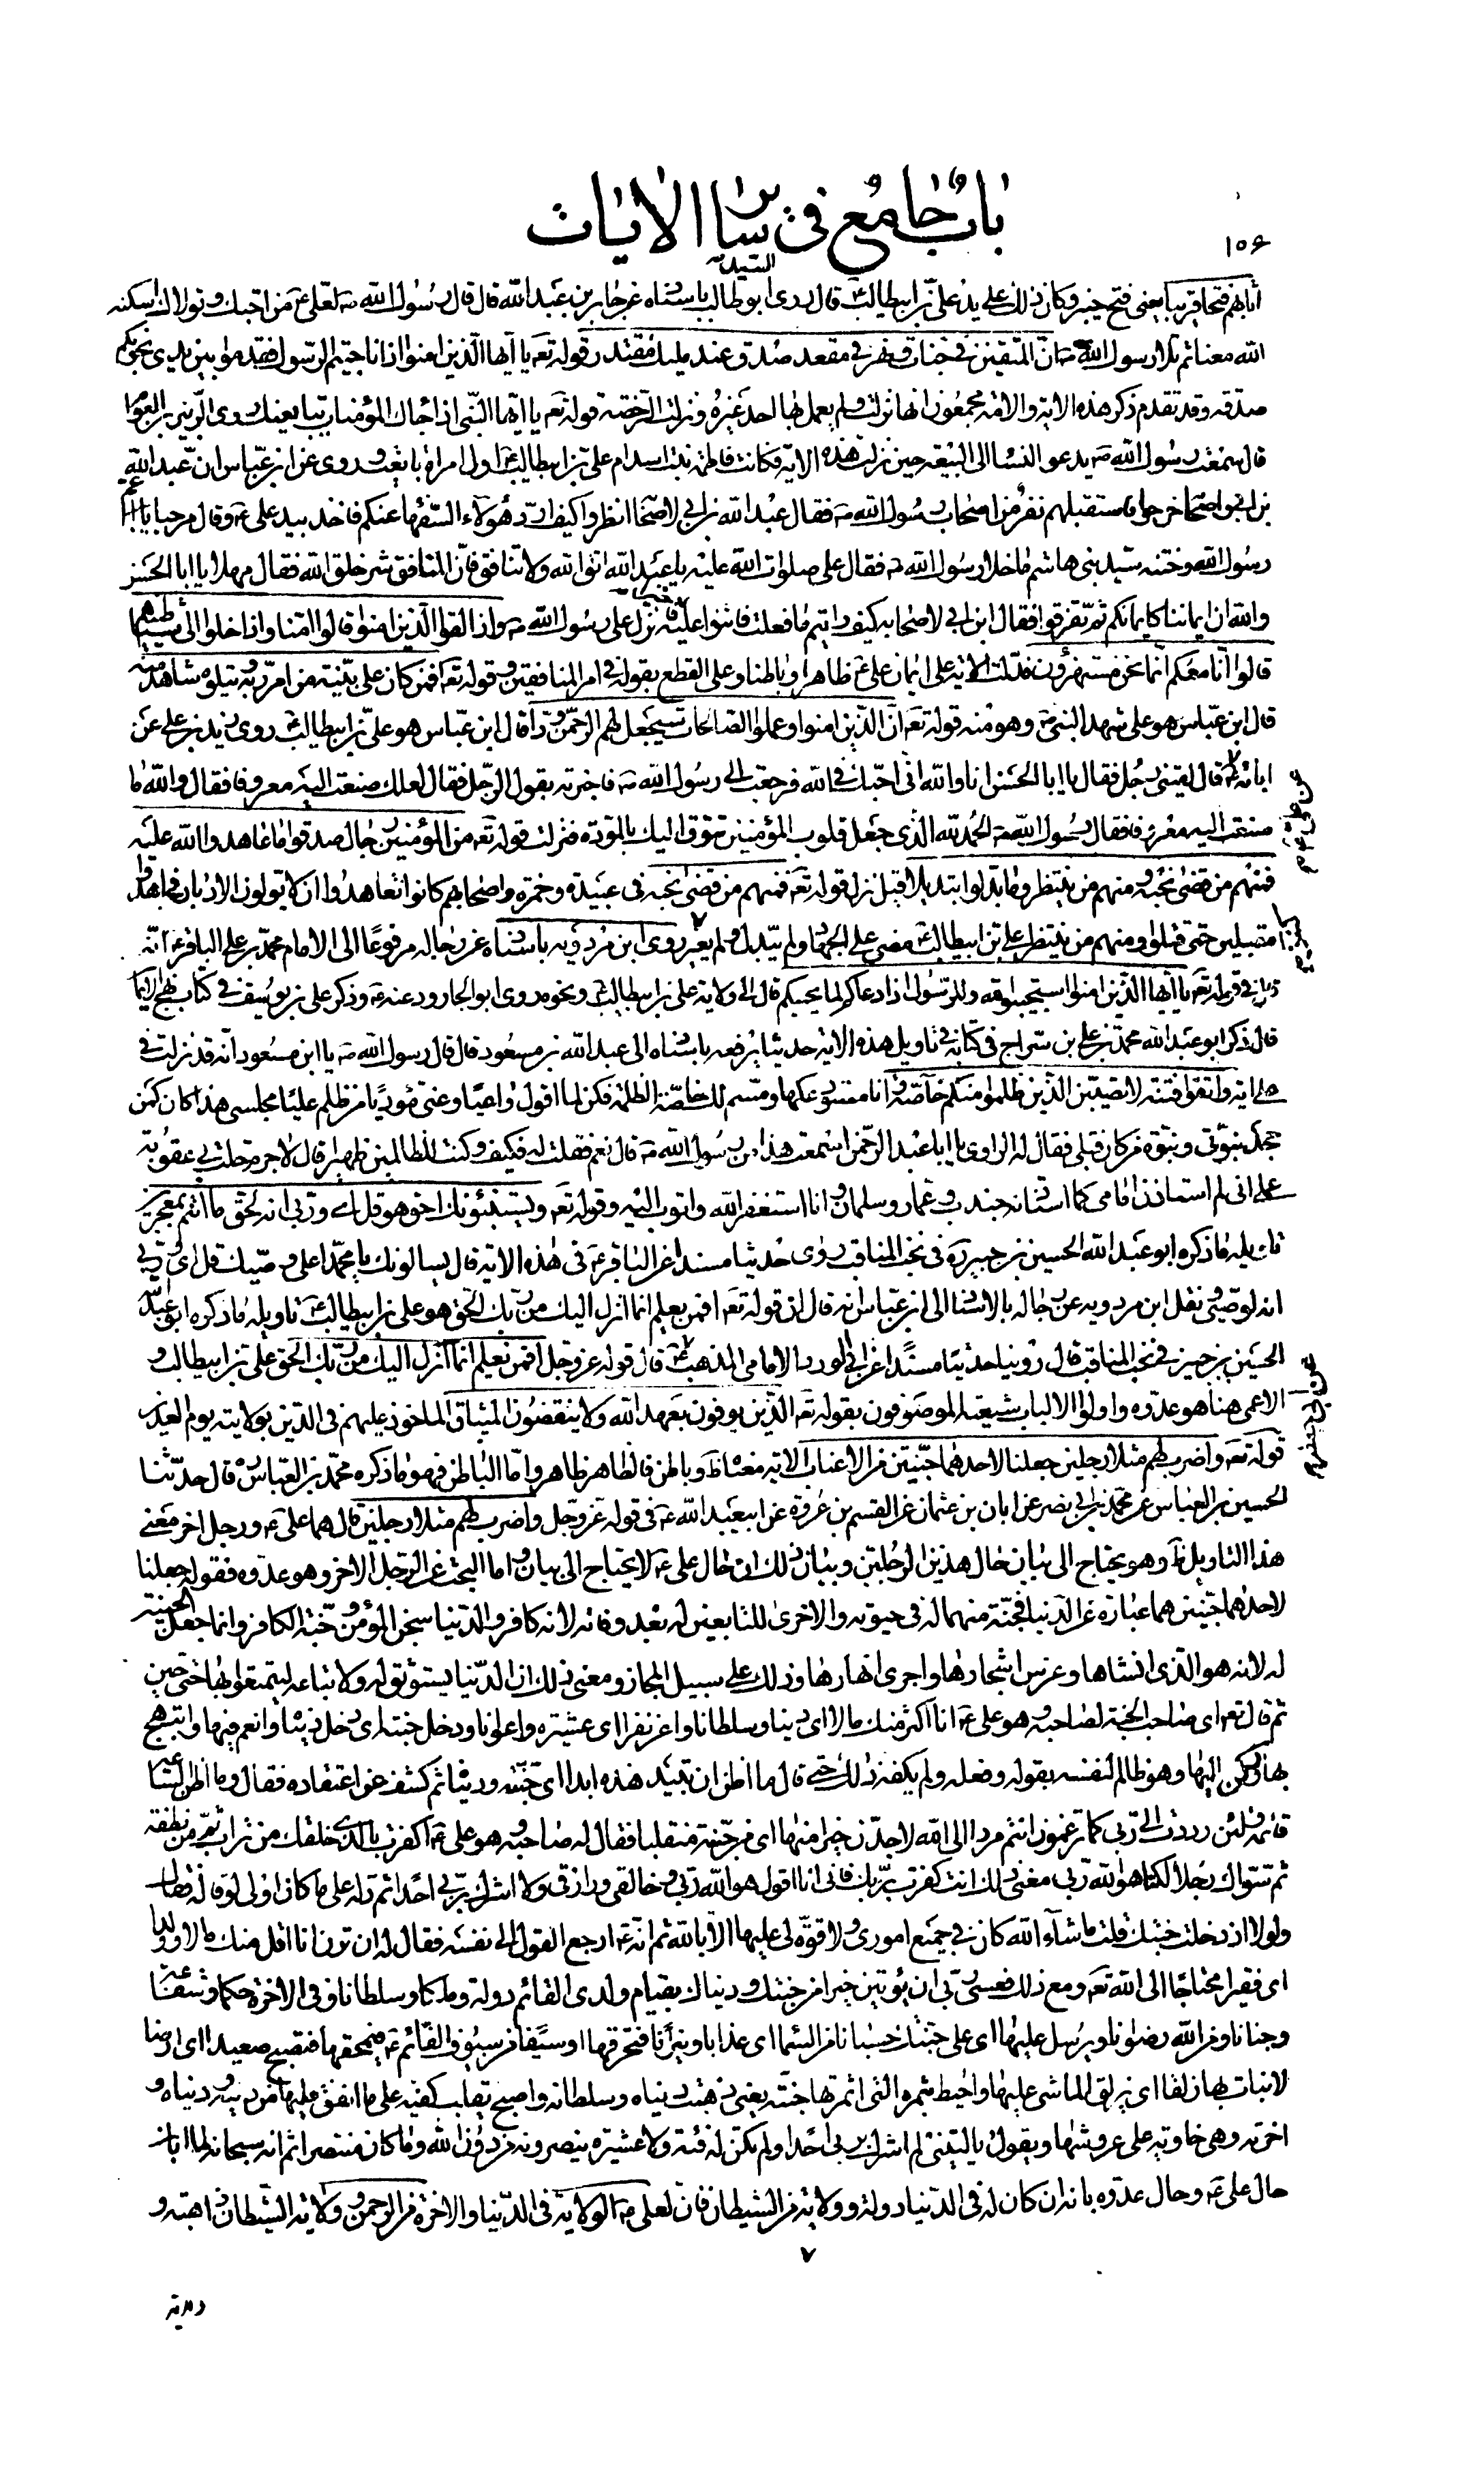 باب جامع في سائر الآيات
١٥٤
السيد
اثابهم فتحا قريبا يعني فتح خيبر وكان ذلك على يد علي بن ابيطالب ع قال روى ابو طالب باسناه عن جابر بن عبد الله قال قال رسول الله ص لعلي ع من احبك وتولاك اسكنه
الله معنا ثم تلا رسول الله ص ان المتقين في جنات ونهر في مقعد صدق عند مليك مقتدر قوله تع يا ايها الذين امنوا اذا ناجيتم الرسول فقدموا بين يدي نجويكم
صدقة وقد تقدم ذكر هذه الاية والامة مجمعون انها نزلت ولم يعمل بها احد غيره ونزلت الرخصة قوله تع يا ايها النبي اذا جاءك المؤمنات يبايعنك روى الزبير بن العوام
قال سمعت رسول الله ص يدعو النساء الى البيعة حين نزلت هذه الاية فكانت فاطمة بنت اسد ام علي بن ابيطالب ع اول امراة بايعت وروى عن ابن عباس ان عبد الله
بن ابي واصحابه خرجوا فاستقبلهم نفر من اصحاب رسول الله ص فقال عبد الله بن ابي لاصحابه انظروا كيف ارد هؤلاء السفهاء عنكم فاخذ بيد علي ع وقال مرحبا يا ابن عم
رسول الله وختنه سيد بني هاشم ما خلا رسول الله ص فقال علي صلوات الله عليه يا عبد الله اتق الله ولا تنافق فان المنافق شر خلق الله فقال مهلا يا ابا الحسن
والله ان ايماننا كايمانكم ثم تفرقوا فقال ابن ابي لاصحابه كيف رايتم ما فعلت فاثنوا عليه خيرا فنزل على رسول الله ص واذا لقوا الذين امنوا قالوا امنا واذا خلوا الى شياطينهم
قالوا انا معكم انما نحن مستهزؤن فدلت الاية على ايمان علي ع ظاهرا وباطنا وعلى القطع بقوله في امر المنافقين وقوله تع افمن كان على بينة من امر ربه ويتلوه شاهد منه
قال ابن عباس هو علي شهد النبي ص وهو منه قوله تع ان الذين امنوا وعملوا الصالحات سيجعل لهم الرحمن ودا قال ابن عباس هو علي بن ابيطالب ع روى زيد بن علي عن
ابائه ع قال لقيني رجل فقال يا ابا الحسن انا والله اني احبك في الله فرجعت الى رسول الله ص فاخبرته بقول الرجل فقال لعلك صنعت اليه معروفا فقال والله ما
عن علي ع م
صنعت اليه معروفا فقال رسول الله ص الحمد لله الذي جعل قلوب المؤمنين تتوق اليك بالمودة فنزلت قوله تع من المؤمنين رجال صدقوا ما عاهدوا الله عليه
فمنهم من قضى نحبه ومنهم من ينتظر وما بدلوا تبديلا قيل نزل قوله تع فمنهم من قضى نحبه في عبيدة وحمزة واصحابهم كانوا تعاهدوا ان لا يولون الادبار فجاهدوا
مقبلين حتى قتلوا ومنهم من ينتظر علي بن ابيطالب ع مضى على الجهاد ولم يبدل ولم يغير روى ابن مردويه باسناه عن رجاله مرفوعا الى الامام محمد بن علي الباقر ع انه
قال في قوله تع يا ايها الذين امنوا استجيبوا لله وللرسول اذا دعاكم لما يحييكم قال الى ولاية علي بن ابيطالب ع ونحوه روى ابو الجارود عنه ع وذكر علي بن يوسف في كتاب نهج الايمان
قال ذكر ابو عبد الله محمد بن علي بن سراج في كتابه في تاويل هذه الاية حديثا يرفعه باسناه الى عبد الله بن مسعود قال قال رسول الله ص يا ابن مسعود انه قد نزلت في
علي اية واتقوا فتنة لا تصيبن الذين ظلموا منكم خاصة وانا مستودعكها ومسم لك خاصة الظلمة فكن لما اقول واعيا وعني مؤديا من ظلم عليا مجلسي هذا كان كمن
جحد نبوتي ونبوة من كان قبلي فقال له الراوي يا ابا عبد الرحمن اسمعت هذا من رسول الله ص قال نعم فقلت له فكيف وكنت للظالمين ظهيرا قال لا جرم حلت بي عقوبة
علي اني لم استاذن امامي كما استاذنه جندب وعمار وسلمان وانا استغفر الله واتوب اليه وقوله تع ويستنبئونك احق هو قل اي وربي انه لحق وما انتم بمعجزين
تاويله ما ذكره ابو عبد الله الحسين بن جبير ره في نخب المناقب روى حديثا مسندا عن الباقر ع في هذه الاية قال يسالونك يا محمد اعلي وصيك قل اي وربي
انه لوصيي ونقل ابن مردويه عن رجاله بالاسناد الى ابن عباس انه قال ان قوله تع افمن يعلم انما انزل اليك من ربك الحق هو علي بن ابيطالب ع تاويله ما ذكره ابو عبد الله
الحسين بن جبير في نخب المناقب قال روينا حديثا مسندا عن ابي الورد الامامي المذهب قال قوله عز وجل افمن يعلم انما انزل اليك من ربك الحق علي بن ابيطالب و
عن ابي جعفر ع م
الاعمى هنا هو عدوه واولوا الالباب شيعته الموصوفون بقوله تع الذين يوفون بعهد الله ولا ينقضون الميثاق الماخوذ عليهم في الدين بولايته يوم الغدير
قوله تع واضرب لهم مثلا رجلين جعلنا لاحدهما جنتين من الاعناب الاية معناه ظ وباطن فالظاهر ظاهر واما الباطن فهو ما ذكره محمد بن العباس ره قال حدثنا
الحسين بن العباس عن محمد بن ابي نصر عن ابان بن عثمان عن القسم بن عروة عن ابيعبد الله ع في قوله عز وجل واضرب لهم مثلا رجلين قال هما علي ع ورجل اخر معنى
هذا التاويل ظ وهو يحتاج الى بيان حال هذين الرجلين وبيان ذلك ان حال علي ع لا يحتاج الى بيان واما البحث عن الرجل الاخر وهو عدوه فقوله جعلنا
لاحدهما جنتين هما عبارة عن الدنيا فجنة منهما له في حيوته والاخرى للتابعين له بعد وفاته لانه كافر والدنيا سجن المؤمن وجنة الكافر وانما جعل الجنتين
له لانه هو الذي انشاها وغرس اشجارها واجرى انهارها وذلك على سبيل المجاز ومعنى ذلك ان الدنيا يستوثق له ولاتباعه ليتمتعوا بها حتى حين
ثم قال تع اي صاحب الجنة لصاحبه وهو علي ع انا اكثر منك مالا اي دينا وسلطانا واعز نفرا اي عشيرة واعوانا ودخل جنته اي دخل دنياه وانعم فيها وابتهج
بها وركن اليها وهو ظالم لنفسه بقوله وفعله ولم يكفه ذلك حتى قال ما اظن ان تبيد هذه ابدا اي جنته ودنياه ثم كشف عن اعتقاده فقال وما اظن الساعة
قائمة ولئن رددت الى ربي كما تزعمون انتم مردا الى الله لاجدن خيرا منها اي من جنته منقلبا فقال له صاحبه وهو علي ع اكفرت بالذي خلقك من تراب ثم من نطفة
ثم سواك رجلا لكنا هو الله ربي معنى ذلك انت كفرت بربك فاني انا اقول هو الله ربي وخالقي ورازقي ولا اشرك بربي احدا ثم دله على ما كان اولى لو قاله فقال
ولولا اذ دخلت جنتك قلت ما شآء الله كان في جميع اموري ولا قوة لي عليها الا بالله ثم انه ع ارجع القول الى نفسه فقال له ان ترن انا اقل منك مالا وولدا
اي فقيرا محتاجا الى الله تع ومع ذلك فعسى ربي ان يؤتين خيرا من جنتك ودنياك بقيام ولدي القائم دولة وملكا وسلطانا وفي الاخرة حكما وشفاعة
وجنانا ومن الله رضوانا ويرسل عليها اي على جنتك حسبانا من السماء اي عذابا ونيرانا فتحرقها او سيفا من سيوف القائم ع فيمحقها فتصبح صعيدا اي ارضا
لا نبات بها زلقا اي يزلق الماشي عليها واحيط بثمره التي اثمرتها جنته يعني ذهبت دنياه وسلطانه واصبح يقلب كفيه على ما انفق عليها من دينه ودنياه و
اخرته وهي خاوية على عروشها ويقول يا ليتني لم اشرك بربي احدا ولم تكن له فئة ولا عشيرة ينصرونه من دون الله وما كان منتصرا ثم انه سبحانه لما ابان
حال علي ع وحال عدوه بانه ان كان له في الدنيا دولة وولاية من الشيطان فان لعلي ع الولاية في الدنيا والاخرة من الرحمن وولاية الشيطان ذاهبة و